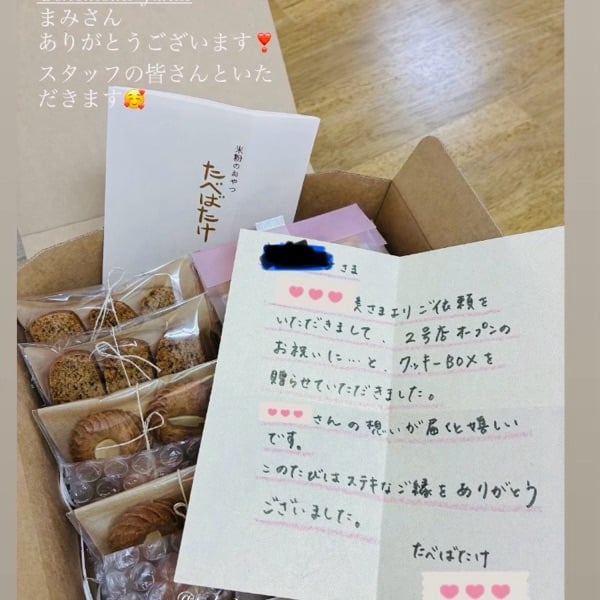 まみさん
ありがとうございます❣️
スタッフの皆さんといた
だきます🥰
米粉のおやつ
たべばたけ
さま
さまより ご依頼を
いただきまして、2号店オープンの
お祝いに…と、クッキーBOXを
贈らせていただきました。
さんの想いが届くと嬉しい
です。
このたびはステキなご縁をありがとう
ございました。
たべばたけ